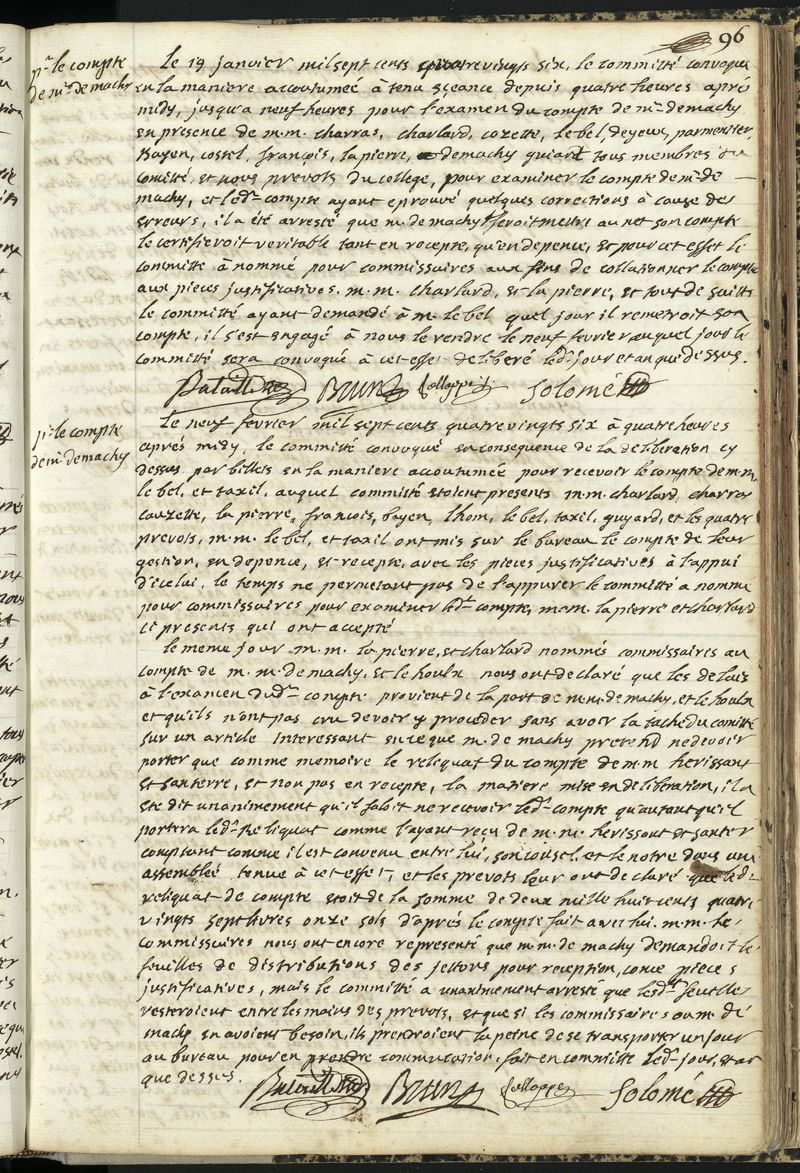 96
pr. le compte
de mr. demachy
Le 19 janvier mil sept cents quatrevingts six, le committé convoqué
en la maniere accoutumée à tenu sçeance depuis quatre heures aprés
midy, jusqu'a neuf heures pour l'examen du compte de mr. demachy
en presence de m.m. charras, charlard, cozette, lebel, deyeux, parmentier,
Bayen, costel, françois, la pierre, demachy guiard tous membres du
comitté, et nous prevots du college, pour examiner le compte de mr. de
machy, et led.t compte ayant eprouvé quelques corrections à cause des
erreurs, il a été arresté que m. de machy feroit mettre au net son compte
le certifieroit veritable tant en recepte, qu'en depence, et pour cet effet le
committé à nommé pour commissaires aux fins de collationner le compte
aux pieces justificatives. m.m. charlard, et la pierre, et tout de suitte
le committé ayant demandé à m. le bel quel jour il remetroit son
compte, il s'est engagé à nous le rendre le neuf fevrier auquel jour le
committé sera convoqué à cet effet deliberé led. jour et an que dessus.
Bataille Brun Salloppe Solomé
pr. le compte
de mr. demachy
Le neuf fevrier mil sept cents quatrevingts six à quatre heures
aprés midy, le committé convoqué en consequence de la deliberation cy
dessus par billets en la maniere accoutumée pour recevoir le compte de m.m.
le bel, et taxil, auquel committé etoient presents m.m. charlard, charras
cauzette, la pierre, francois, bayen, lhom, lebel, taxil, guyard, et les quatre
prevots, m.m. le bel, et taxil ont mis sur le bureau le compte de leur
gestion, en depence, et recepte, avec les pieces justificatives à l'appui
d'icelui, le temps ne permetant pas de l'appurer le committé a nommé
pour commissaires pour examiner led.t compte, m.m. la pierre et charlard
ci presents qui ont accepté
Le meme jour m.m. la pierre, et charlard nommés commissaires au
compte de m.m. de machy, et le houlx nous ont declaré que les delais
à l'examen dud.t compte provient de la part de m.m. de machy, et le houlx
et qu'ils n'ont pas cru devoir y proceder sans avoir la tache du comitté
sur un article interessant en ce que m. de machy pretend ne devoir
porter que comme memoire le reliquat du compte de m.m herissant
et santerre, et non pas en recepte, la matiere mise en deliberation, il a
ete dit unanimement qu'il faloit ne recevoir led.t compte qu'autant qu'il
portera led.t Reliquat comme l'ayant reçu de m.m. herissant et santer
comptant comme il est convenu entre lui, son conseil, et le notre dans une
assemblée tenue à cet effet, et les prevots leur ont declaré que led.t
reliquat de compte etoit de la somme de deux mille huit cents quatre
vingts sept livres onze sols d'aprés le compte fait avec lui. m.m. les
commissaires nous ont encore representé que m.m. de machy demandoit les
feuilles de distributions des jettons pour reception, come pieces
justificatives, mais le committé a unanimement arresté que lesd.t feuilles
resteroient entre les mains des prevots, et que si les commissaires ou m. de
machy en avoient besoin, ils prendroient la peine de se transporter un jour
au bureau pour en prendre communication. fait en committé led.t jour, et an
que dessus.
Bataille Brun Salloppe Solomé